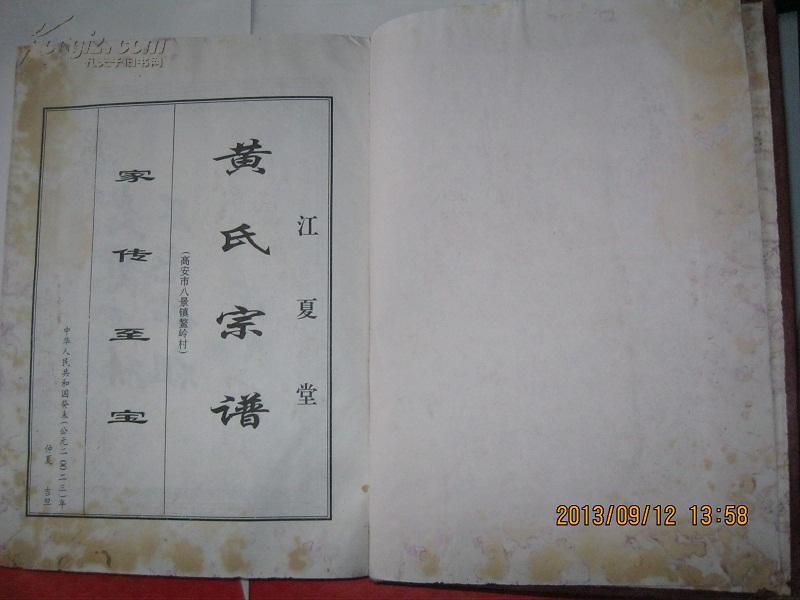 Kongfz.com
孔夫子旧书网
江夏堂
黄氏宗谱
(高安市八景镇鳌岭村)
家传至宝
中华人民共和国癸未(公元二
三)年
仲夏 吉旦
2013/09/12 13:58